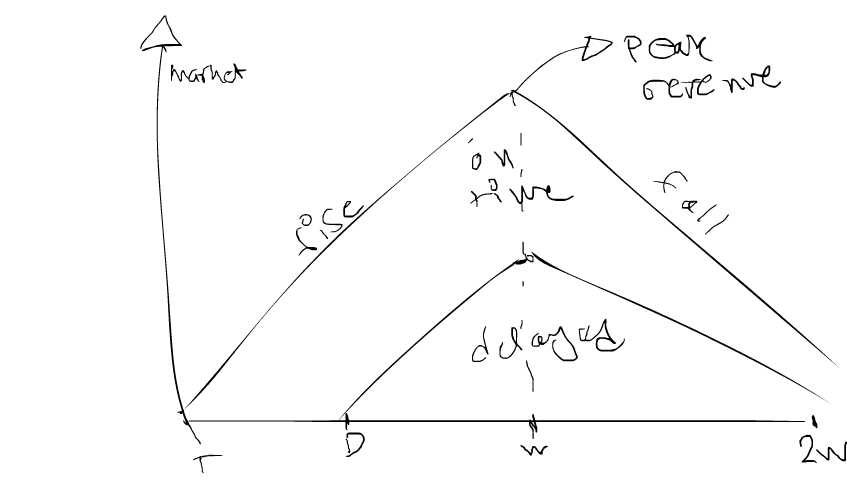 market
Peak
revenue
on
time
rise
fall
delayed
T
D
W
2W